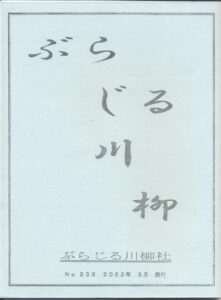 ぶらじる川柳
ぶらじる川柳社
No 233 2022年 5月 発行